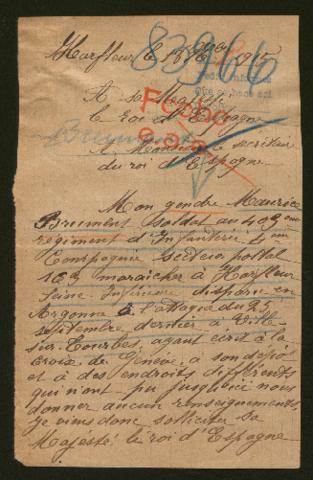 Harfleur le 1915
83966
A sa Majesté
le roi d'Espagne
Monsieur le secrétaire
du roi d'Espagne
Brument
Mon gendre Maurice
Brument soldat au 409 eme
régiment d'Infanterie 4 eme
Compagnie secteur postal
103 maraicher à Harfleur
Seine Inférieure disparu en
Argonne à l'attaque du 25
septembre dernier à Ville
sur Tourbes, ayant écrit à la
Croix de Genève, à son dépôt
et à des endroits différents
qui n'ont pu jusqu'ici nous
donner aucun renseignements,
je viens donc solliciter sa
Majesté le roi d'Espagne